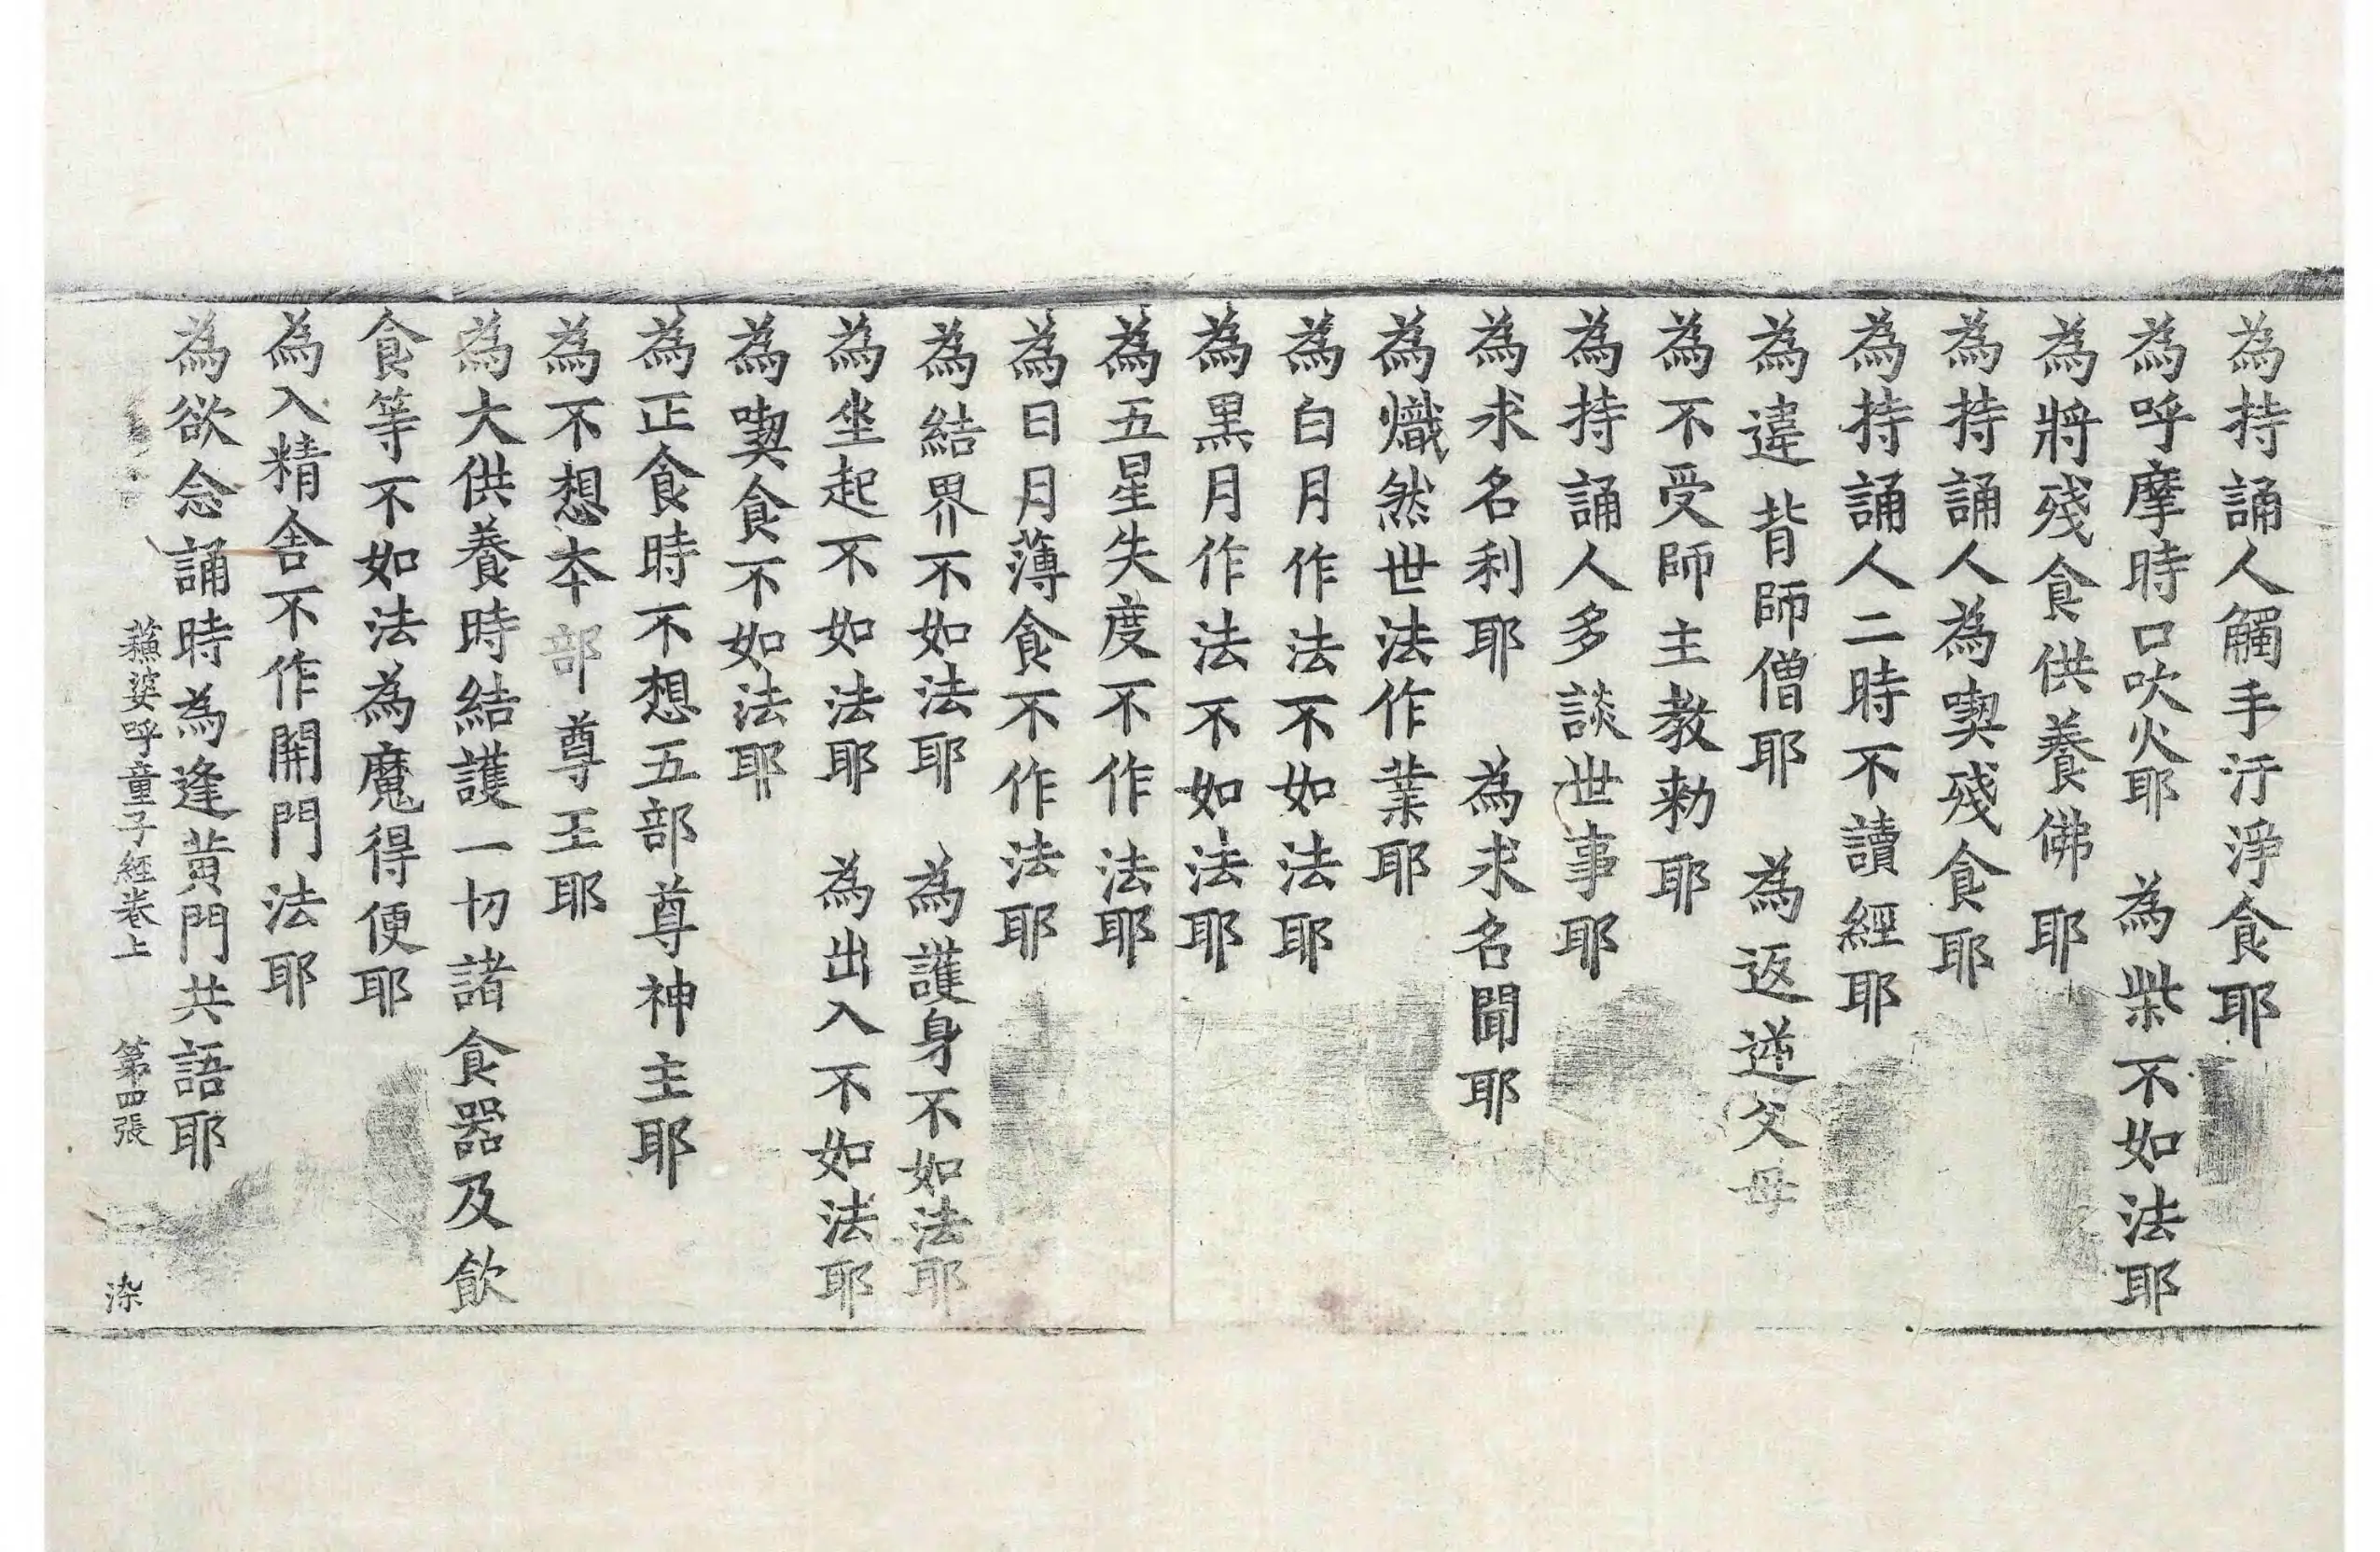 為持誦人觸手汙淨食耶
為呼摩時口吹火耶　為柴不如法耶
為將殘食供養佛耶
為持誦人為喫殘食耶
為持誦人二時不讀經耶
為違背師僧耶　為返逆父母
為不受師主教勑耶
為持誦人多談世事耶
為求名利耶　為求名聞耶
為熾然世法作業耶
為白月作法不如法耶
為黒月作法不如法耶
為五星失度不作法耶
為日月薄食不作法耶
為結界不如法耶　為護身不如法耶
為坐起不如法耶　為出入不如法耶
為喫食不如法耶
為正食時不想五部尊神主耶
為不想本部尊王耶
為大供養時結護一切諸食器及飲
食等不如法為魔得便耶
為入精舍不作開門法耶
為欲念誦時為逢黃門共語耶
蘓婆呼童子經卷上　第四張　染